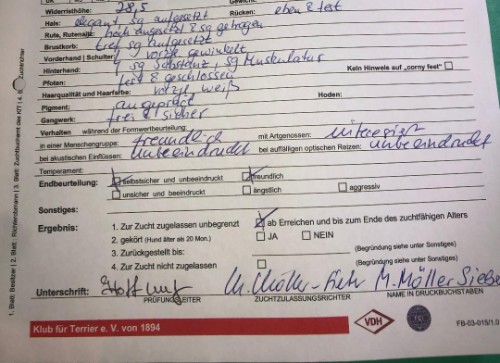 Widerristhöhe: 28,5 Gewicht: Rücken: eben & fest
Hals: elegant sg aufgesetzt
Rute, Rutenansatz: hoch angesetzt & sg getragen
Brustkorb: tief, sg aufgesetzt
Vorderhand | Schulter: vorzgl. gewinkelt
Hinterhand: sg Substanz, sg Muskulatur
Pfoten: fest & geschlossen Kein Hinweis auf „corny feet“
Haarqualität und Haarfarbe: vorzgl, weiß
Pigment: ausgeprägt Hoden:
Gangwerk: frei & sicher
Verhalten während der Formwertbeurteilung:
in einer Menschengruppe: freundlich mit Artgenossen:
bei akustischen Einflüssen: Unbeeindruckt bei auffälligen optischen Reizen: unbeeindruckt
Temperament:
Endbeurteilung: selbstsicher und unbeeindruckt freundlich
unsicher und beeindruckt ängstlich aggressiv
Sonstiges:
Ergebnis: 1. Zur Zucht zugelassen unbegrenzt ab Erreichen und bis zum Ende des zuchtfähigen Alters
2. gekört (Hund älter als 20 Mon.) JA NEIN
3. Zurückgestellt bis: (Begründung siehe unter Sonstiges)
4. Zur Zucht nicht zugelassen (Begründung siehe unter Sonstiges)
Unterschrift: M. Möller M. Möller Siebe
PRÜFUNGSLEITER ZUCHTZULASSUNGSRICHTER NAME IN DRUCKBUCHSTABEN
Klub für Terrier e. V. von 1894 VDH FCI FB-03-015/1.0
1. Blatt: Besitzer | 2. Blatt: Richter/Amann | 3. Blatt: Zuchtbuchamt des KfT | 4.